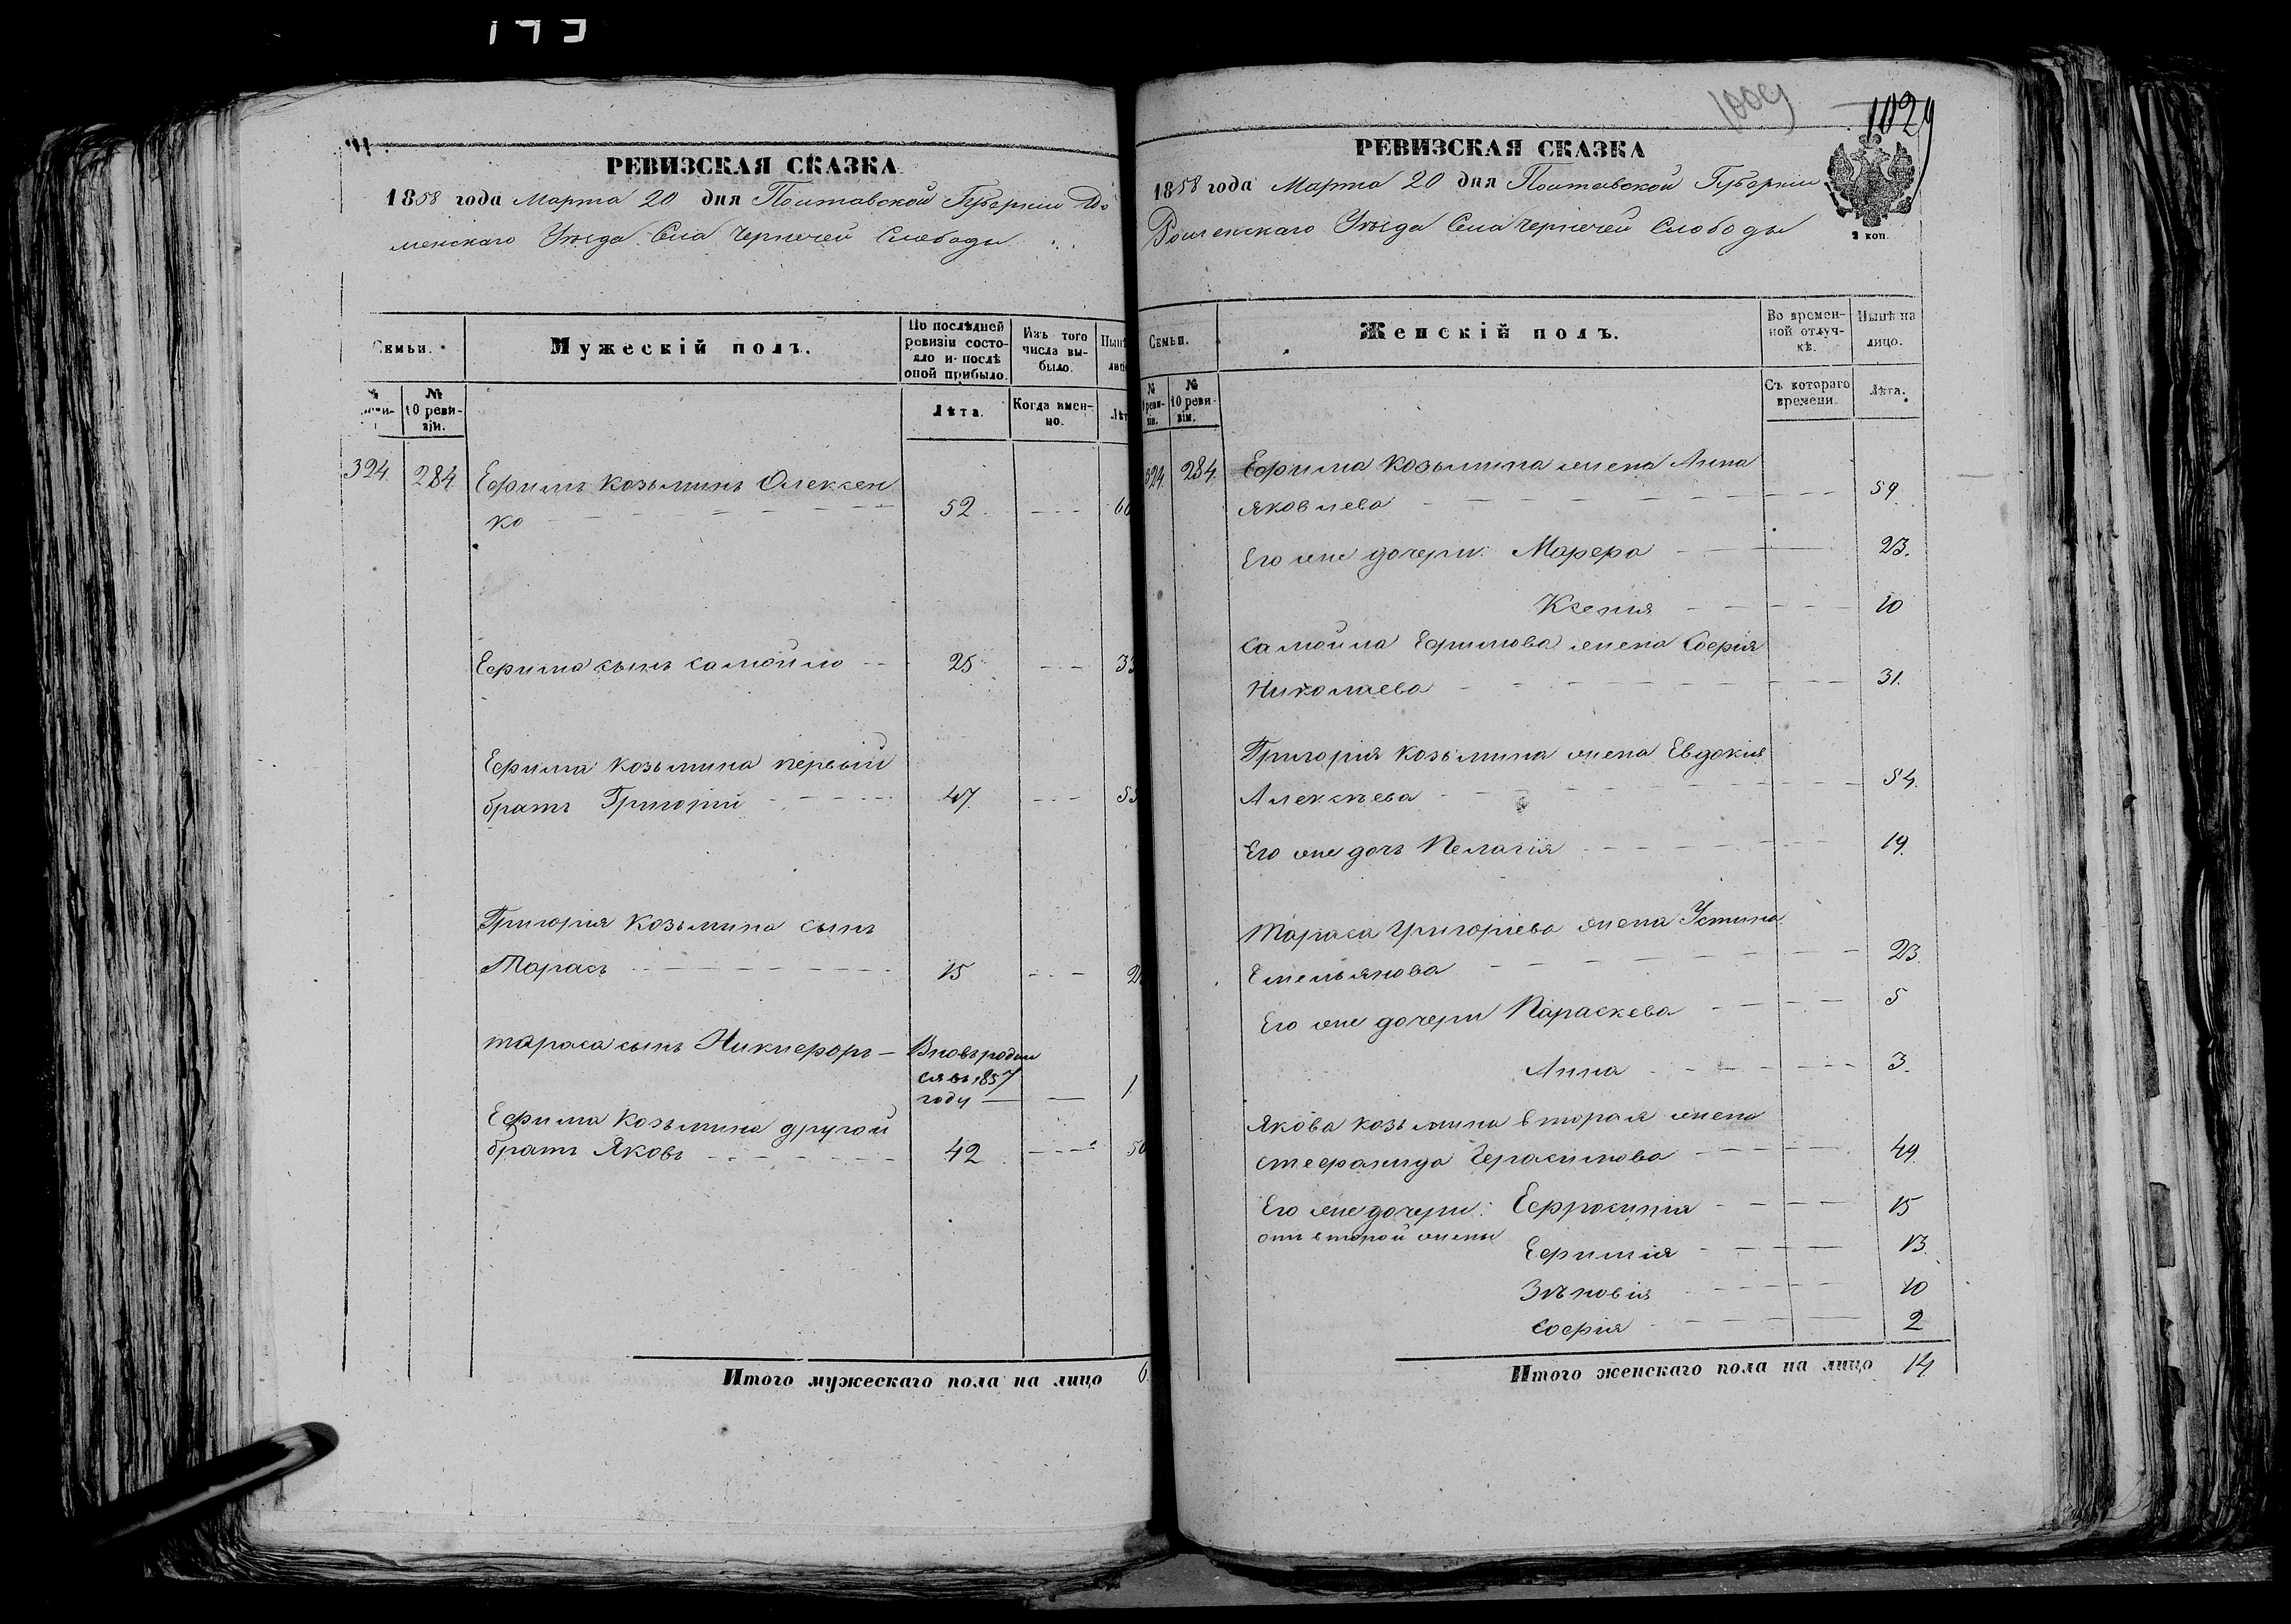 РЕВИЗСКАЯ СКАЗКА
1858 года Марта 20 дня Полтавской Губерніи Ро
менскаго Уѣзда Села Чернечей Слободы
Семьи.
Мужескій полъ.
По послѣдней ревизіи состояло и послѣ оной прибыло.
Изъ того числа выбыло.
№ 10 ревизіи.
Лѣта.
Когда именно.
394 284 Ефимъ Козьминъ Олексен
ко 52
Ефима сынъ Самойло 25
Ефима Козьмина первый
братъ Григорій 47
Григорія Козьмина сынъ
Тарасъ 15
Тараса сынъ Никифоръ Вновь родил
ся въ 1857
году 1
Ефима Козьмина другой
братъ Яковъ 42 50
Итого мужескаго пола на лицо 6
1009
1029
РЕВИЗСКАЯ СКАЗКА
1858 года Марта 20 дня Полтавской Губерніи
Роменскаго Уѣзда Села Чернечей Слободы
2 коп.
Семьи.
Женскій полъ.
Во временной отлучкѣ.
Нынѣ на лицо.
№ 10 ревизіи.
Съ котораго времени.
Лѣта.
284 Ефима Козьмина жена Анна
Яковлева 59
Его же дочери: Марфа 23.
Ксенія 10
Самойла Ефимова жена Софія
Николаева 31.
Григорія Козьмина жена Евдокія
Алексѣева 54.
Его же дочь Пелагія 19.
Тараса Григоріева жена Устина
Емельянова 23.
Его же дочери Параскева 5
Анна 3.
Якова Козьмина вторая жена
Стефанида Герасимова 49.
Его же дочери: Ефросинія 15
отъ второй жены
Ефимія 13.
Зѣновія 10
Софія 2
Итого женскаго пола на лицо 14